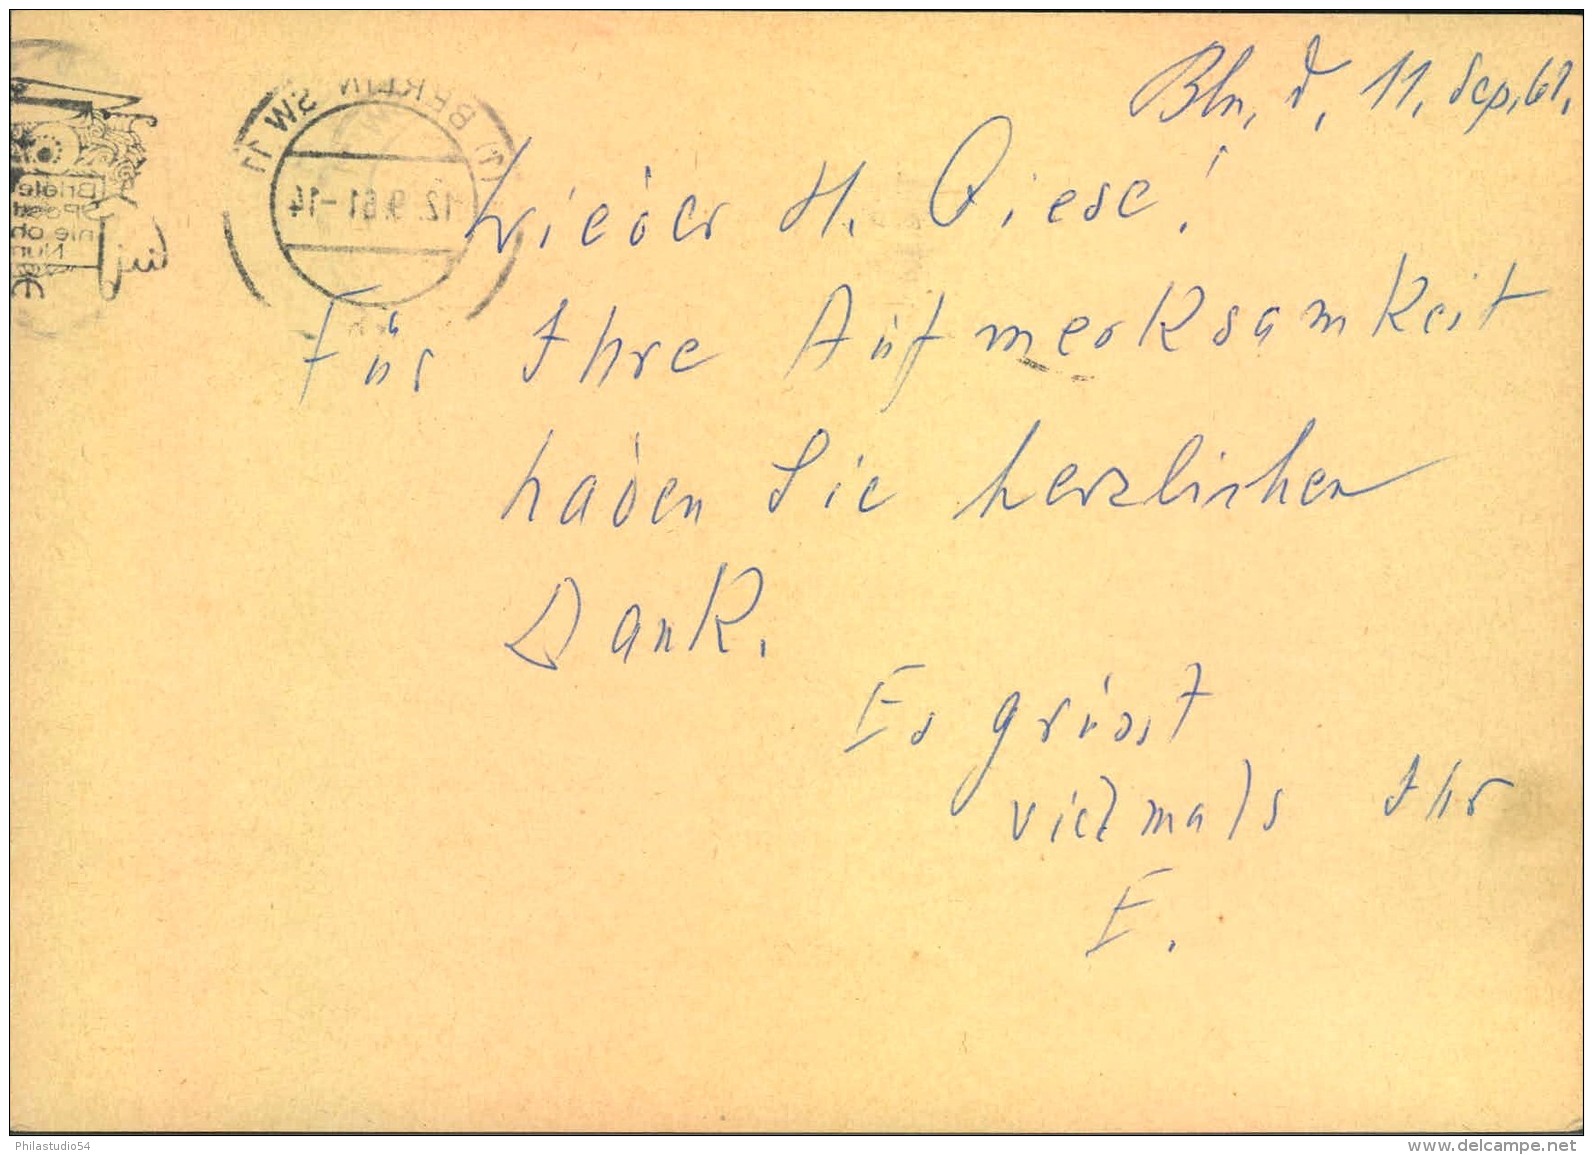 Bln, d, 11. Sep. 61.
(1) BERLIN SW 11
12.9.61-14
Lieber H. Riese!
Für Ihre Aufmerksamkeit
haben Sie herzlichen
Dank.
Es grüsst
vielmals Ihr
E.
Philastudio54
www.delcampe.net